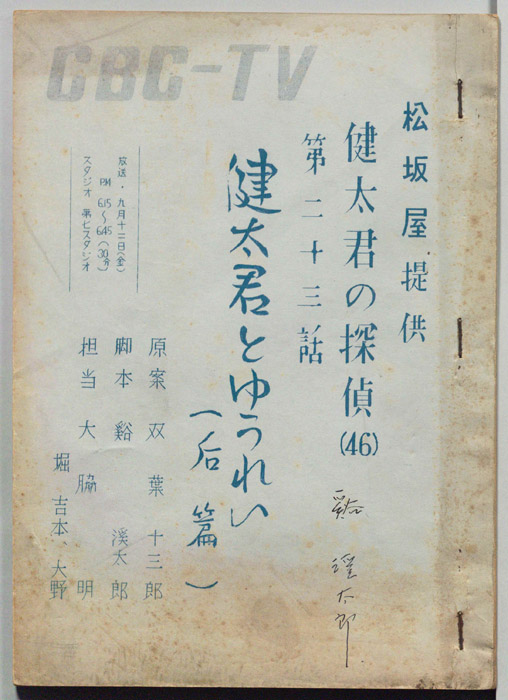 CBC-TV
松坂屋提供
健太君の探偵(46)
第二十三話
健太君とゆうれい
(后篇)
放送・九月十二日(金)
PM 6.15〜6.45(30分)
スタジオ 第七スタジオ
原案 双葉十三郎
脚本 谿 渓太郎
担当 大脇 明
堀 吉本、大野
谿 渓太郎